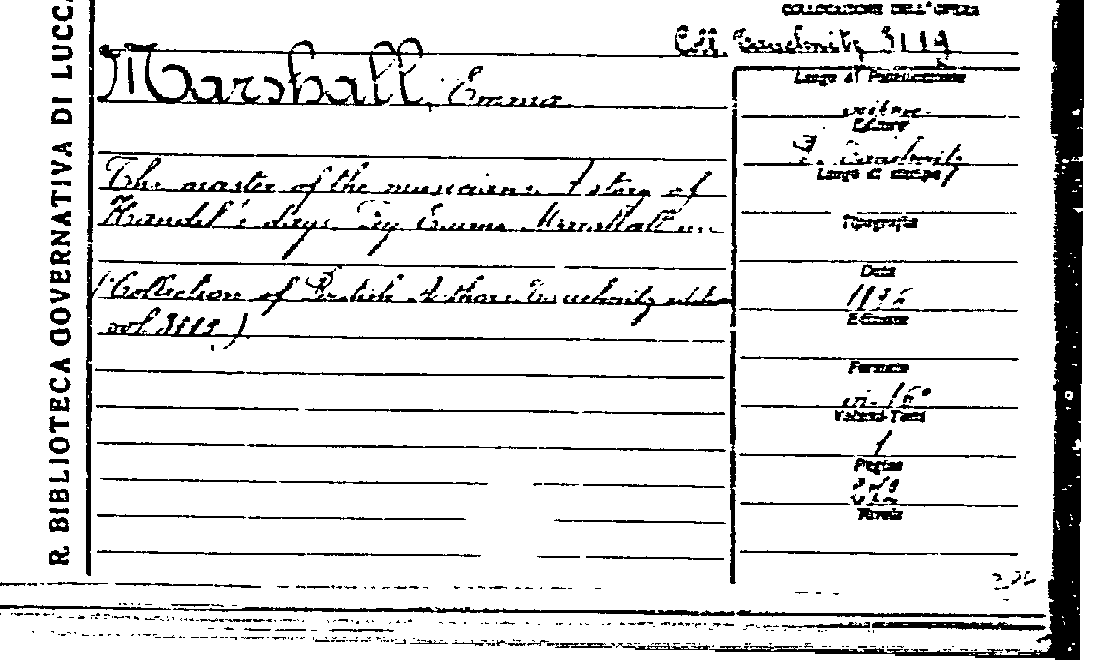 R. BIBLIOTECA GOVERNATIVA DI LUCCA
COLLOCAZIONE DELL'OPERA
Coll. Tauchnitz 3119
Marshall, Emma
The master of the musicians. A story of
Handel's days. By Emma Marshall
(Collection of British Authors Tauchnitz
vol 3119)
Luogo di Pubblicazione
Editore
B. Tauchnitz
Luogo di stampa
Tipografia
Data
Edizione
Formato
in-16°
Volumi-Tomi
1
Pagine
Tavole